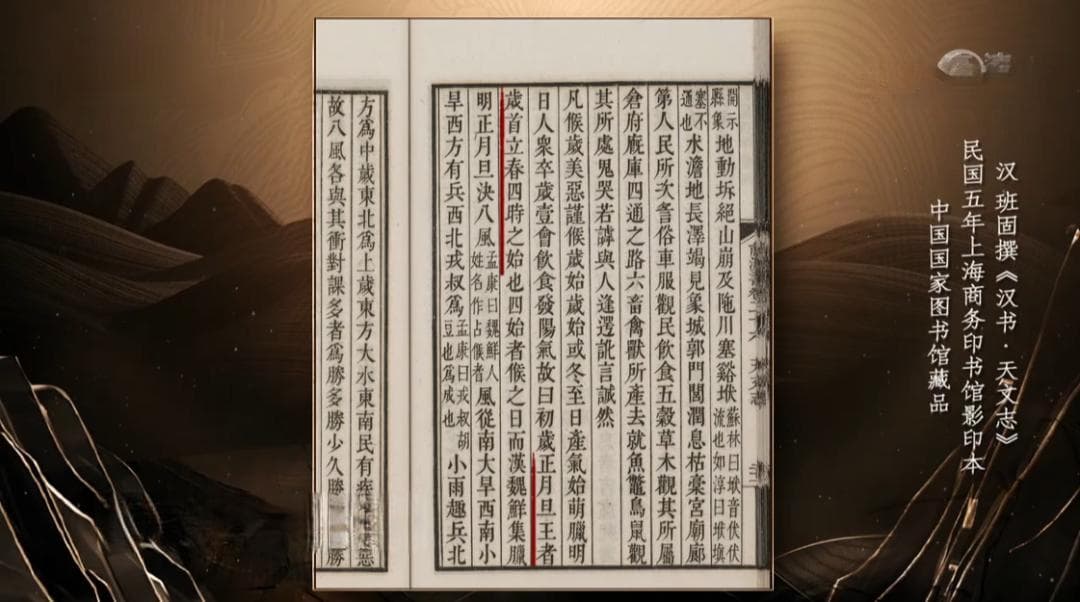 汉 班固撰《汉书·天文志》
民国五年上海商务印书馆影印本
中国国家图书馆藏品
開示縣象地動坼絕山崩及陁川塞谿垘蘇林曰垘音伏伏流也如淳曰垘塡
塞不通也水澹地長澤竭見象城郭門閭潤息枯稾宮廟廊
第人民所次䚻俗車服觀民飲食五穀草木觀其所屬
倉府廄庫四通之路六畜禽獸所產去就魚鼈鳥鼠觀
其所處鬼哭若謼與人逢遌訛言誠然
凡候歲美惡謹候歲始歲始或冬至日產氣始萌臘明
日人衆卒歲壹會飲食發陽氣故曰初歲正月旦王者
歲首立春四時之始也四始者候之日而漢魏鮮集臘
明正月旦決八風孟康曰魏鮮人姓名作占候者風從南大旱西南小
旱西方有兵西北戎叔爲孟康曰戎叔胡豆也爲成也小雨趣兵北
方爲中歲東北爲上歲東方大水東南民有疾惡
故八風各與其衝對課多者爲勝多勝少久勝勝